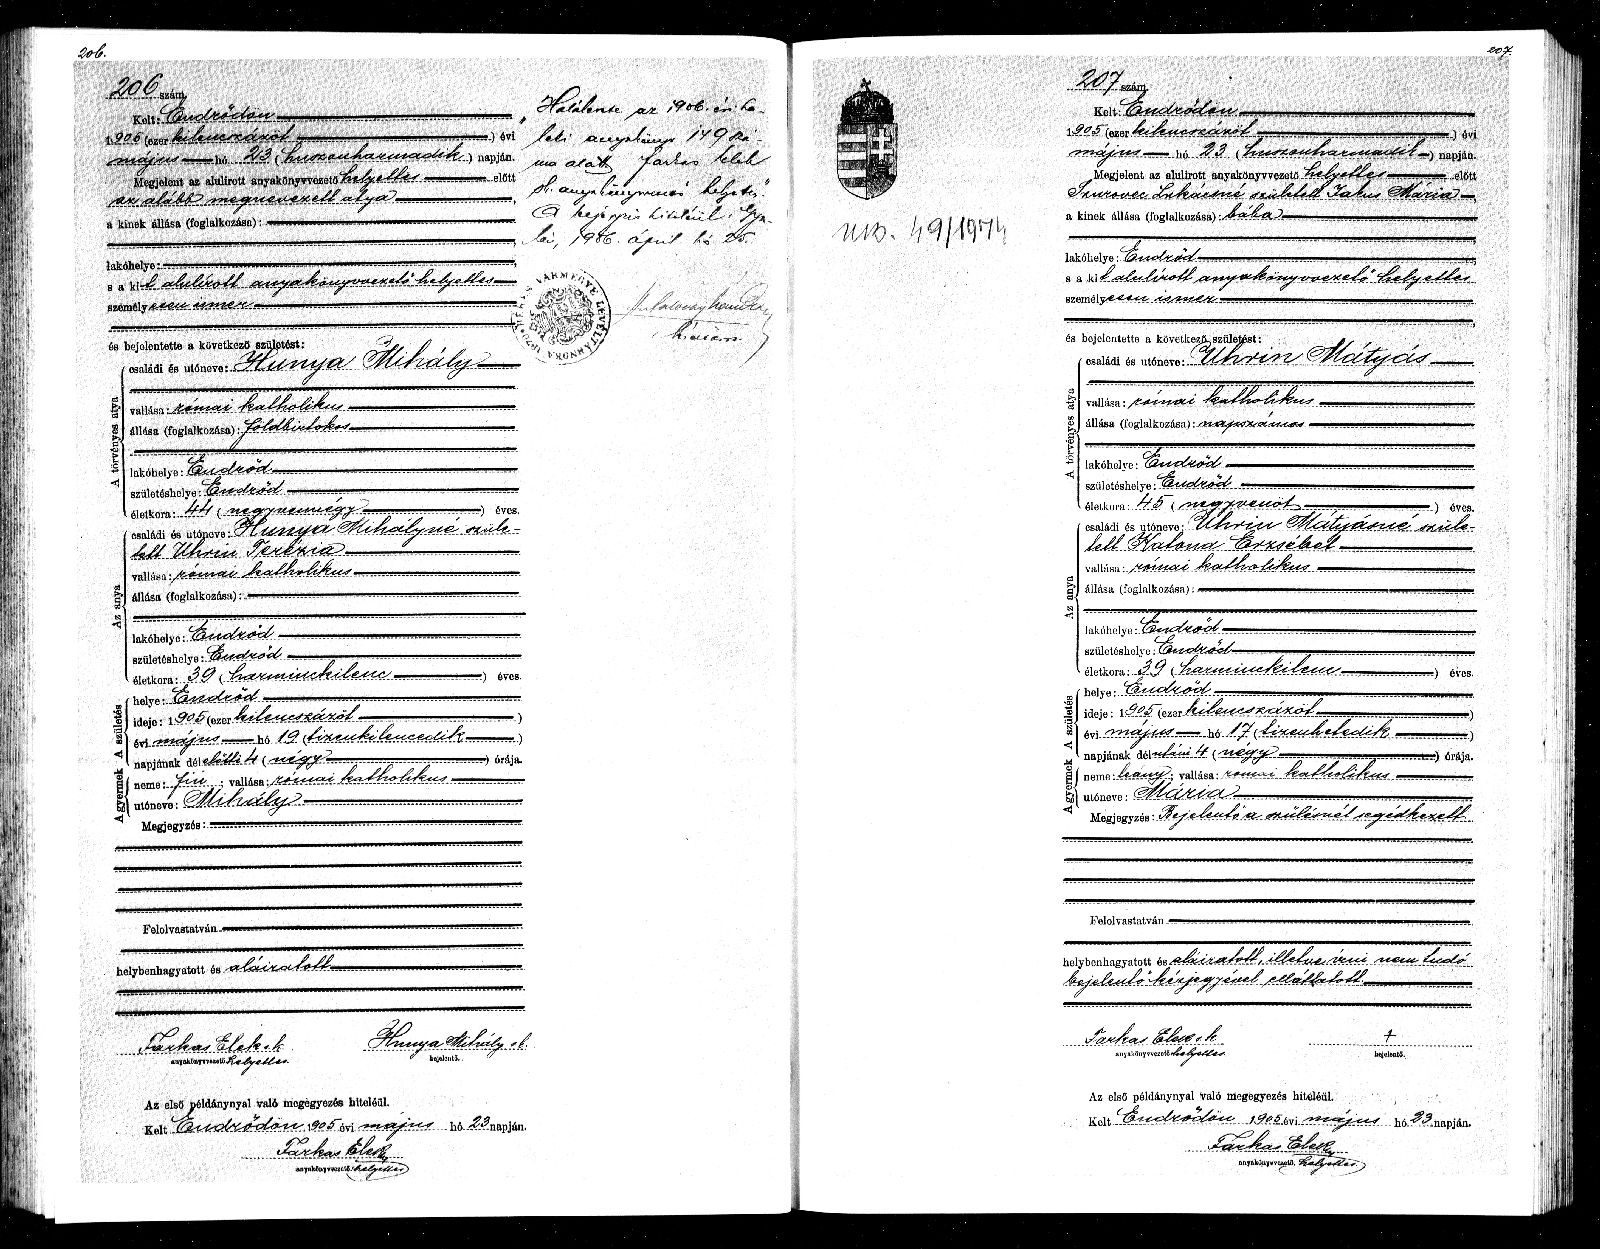 206.
206 szám.
Kelt: Endrődön
1905 (ezer kilencszázöt) évi
május hó 23 (huszonharmadik) napján.
Megjelent az alulirott anyakönyvvezető helyettes előtt
az alább megnevezett atya,
a kinek állása (foglalkozása):
lakóhelye:
s a kit alulírott anyakönyvvezető helyettes
személyesen ismer
és bejelentette a következő születést:
A törvényes atya
családi és utóneve: Hunya Mihály
vallása: római katholikus
állása (foglalkozása): földbirtokos
lakóhelye: Endrőd
születéshelye: Endrőd
életkora: 44 (negyvennégy) éves.
Az anya
családi és utóneve: Hunya Mihályné szüle-
tett Uhrin Terézia
vallása: római katholikus
állása (foglalkozása):
lakóhelye: Endrőd
születéshelye: Endrőd
életkora: 39 (harminckilenc) éves.
A születés
helye: Endrőd
ideje: 1905 (ezer kilencszázöt)
évi május hó 19 (tizenkilencedik)
napjának délelőtti 4 (négy) órája.
A gyermek
neme: fiu; vallása: római katholikus
utóneve: Mihály
Megjegyzés:
Felolvastatván
helybenhagyatott és aláiratott
Farkas Elek sk Hunya Mihály sk.
anyakönyvvezető helyettes bejelentő.
Az első példánynyal való megegyezés hiteléül.
Kelt Endrődön 1905 évi május hó 23 napján.
Farkas Elek
anyakönyvvezető helyettes
„Halálesete az 1906. évi ha-
lotti anyakönyv 149 szá-
ma alatt Farkas Elek
sk. anyakönyvvezető helyettes"
A bejegyzés hiteléül: Gyu-
lán, 1906. ápril hó 25.
BÉKÉS VÁRMEGYE LEVÉLTÁRNOKA
207.
207 szám.
Kelt: Endrődön
1905 (ezer kilencszázöt) évi
május hó 23 (huszonharmadik) napján.
Megjelent az alulirott anyakönyvvezető helyettes előtt
Lukácsné született Mária,
a kinek állása (foglalkozása): bába
lakóhelye: Endrőd
s a kit alulírott anyakönyvvezető helyettes
személyesen ismer
és bejelentette a következő születést:
A törvényes atya
családi és utóneve: Uhrin Mátyás
vallása: római katholikus
állása (foglalkozása): napszámos
lakóhelye: Endrőd
születéshelye: Endrőd
életkora: 45 (negyvenöt) éves.
Az anya
családi és utóneve: Uhrin Mátyásné szüle-
tett Katona Erzsébet
vallása: római katholikus
állása (foglalkozása):
lakóhelye: Endrőd
születéshelye: Endrőd
életkora: 39 (harminckilenc) éves.
A születés
helye: Endrőd
ideje: 1905 (ezer kilencszázöt)
évi május hó 17 (tizenhetedik)
napjának délutáni 4 (négy) órája.
A gyermek
neme: leány; vallása: római katholikus
utóneve: Mária
Megjegyzés: Bejelentő a szülésnél segédkezett
Felolvastatván
helybenhagyatott és aláiratott, illetve írni nem tudó
bejelentő kézjegyével elláttatott
Farkas Elek sk +
anyakönyvvezető helyettes bejelentő.
Az első példánynyal való megegyezés hiteléül.
Kelt Endrődön 1905 évi május hó 23 napján.
Farkas Elek
anyakönyvvezető helyettes
49/1974